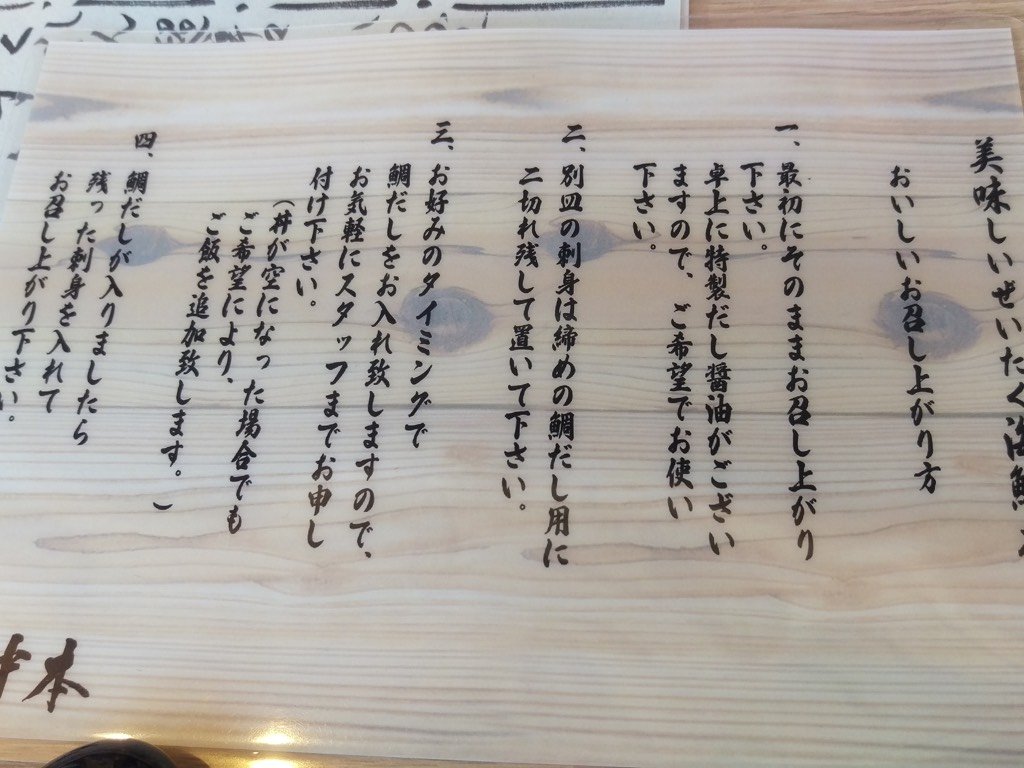 美味しいぜいたく海鮮
おいしいお召し上がり方
一、最初にそのままお召し上がり
下さい。
卓上に特製だし醤油がござい
ますので、ご希望でお使い
下さい。
二、別皿の刺身は締めの鯛だし用に
二切れ残して置いて下さい。
三、お好みのタイミングで
鯛だしをお入れ致しますので、
お気軽にスタッフまでお申し
付け下さい。
(丼が空になった場合でも
ご希望により、
ご飯を追加致します。)
四、鯛だしが入りましたら
残った刺身を入れて
お召し上がり下さい。
本